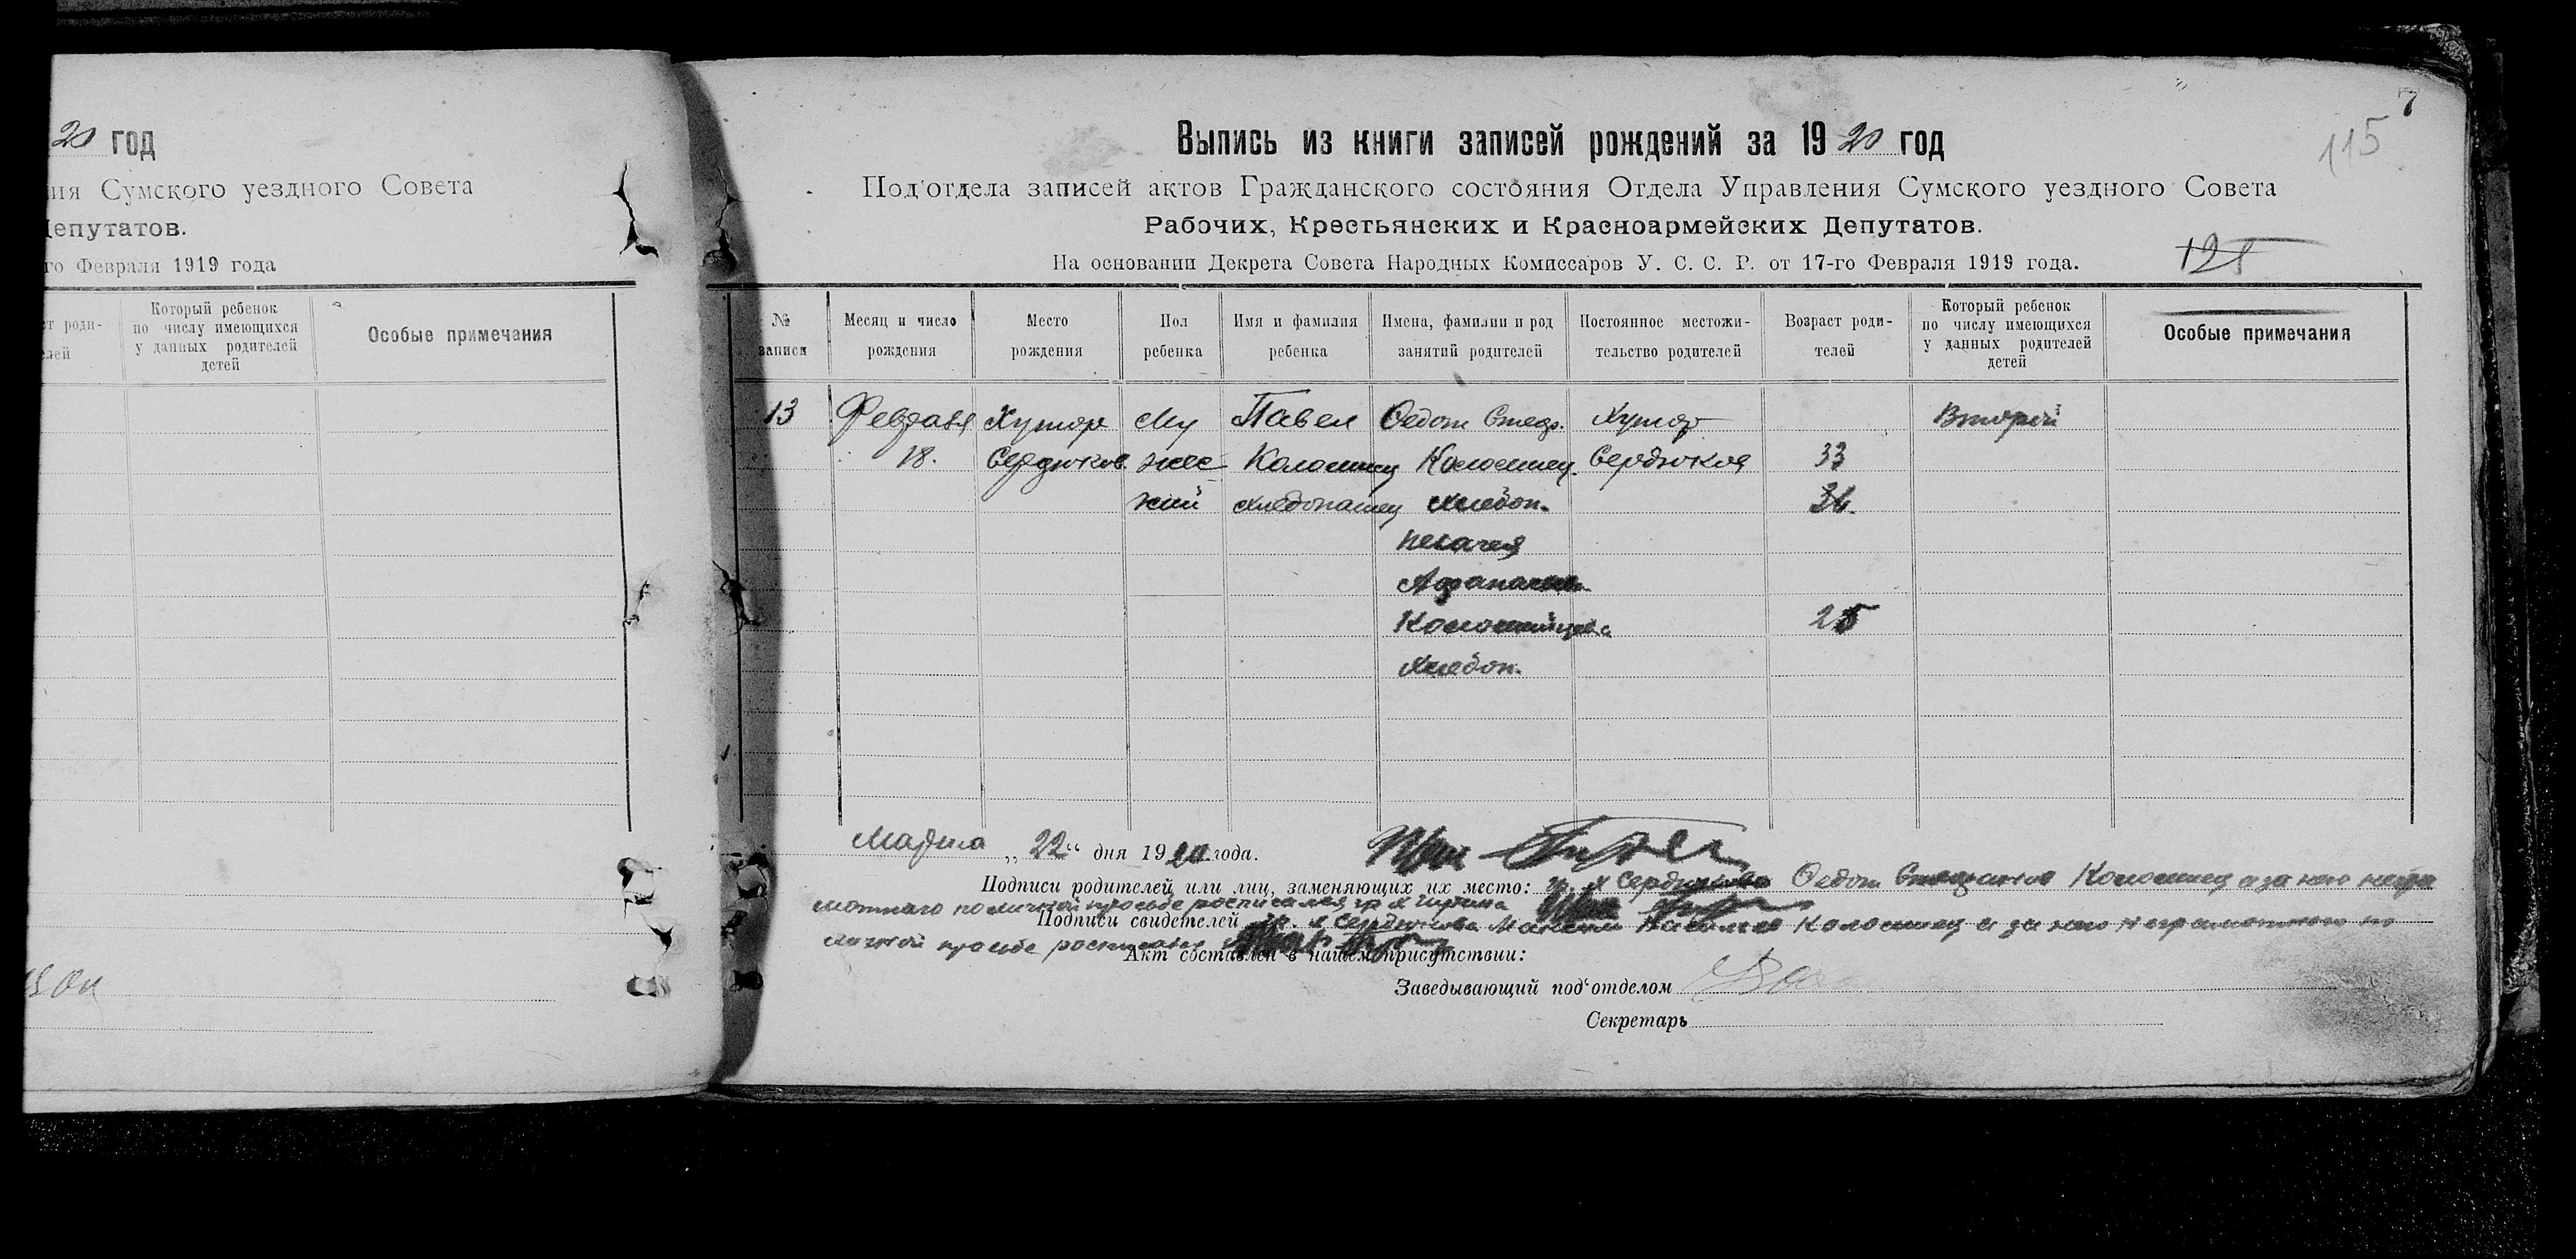 20 год
ия Сумского уездного Совета
епутатов.
го Февраля 1919 года
т роди-
елей
Который ребенок
по числу имеющихся
у данных родителей
детей
Особые примечания
7
115
Выпись из книги записей рождений за 1920 год
Под‘отдела записей актов Гражданского состояния Отдела Управления Сумского уездного Совета
Рабочих, Крестьянских и Красноармейских Депутатов.
На основании Декрета Совета Народных Комиссаров У. С. С. Р. от 17-го Февраля 1919 года.
121
№
записи
Месяц и число
рождения
Место
рождения
Пол
ребенка
Имя и фамилия
ребенка
Имена, фамилии и род
занятий родителей
Постоянное местожи-
тельство родителей
Возраст роди-
телей
Который ребенок
по числу имеющихся
у данных родителей
детей
Особые примечания
13 Февраля Хутор Му Павел Федот Стеф. Хутор Второй
18. Сердюков. жес Коломиец Коломиец Сердюков 33
кий хлебопашец хлебоп.
Пелагея
Афанасьев.
Коломийцева 25
хлебоп.
Марта „22“ дня 1920 года.
Подписи родителей или лиц, заменяющих их место: гр. х Сердюкова Федот Стефанов Коломиец а за него негра
мотнаго по личной просьбе росписался гр х
Подписи свидетелей гр. х Сердюкова Максим Коломиец а за него неграмотного по
личной просьбе росписался
Акт составлен в нашем присутствии:
Заведывающий под‘отделом
Секретарь